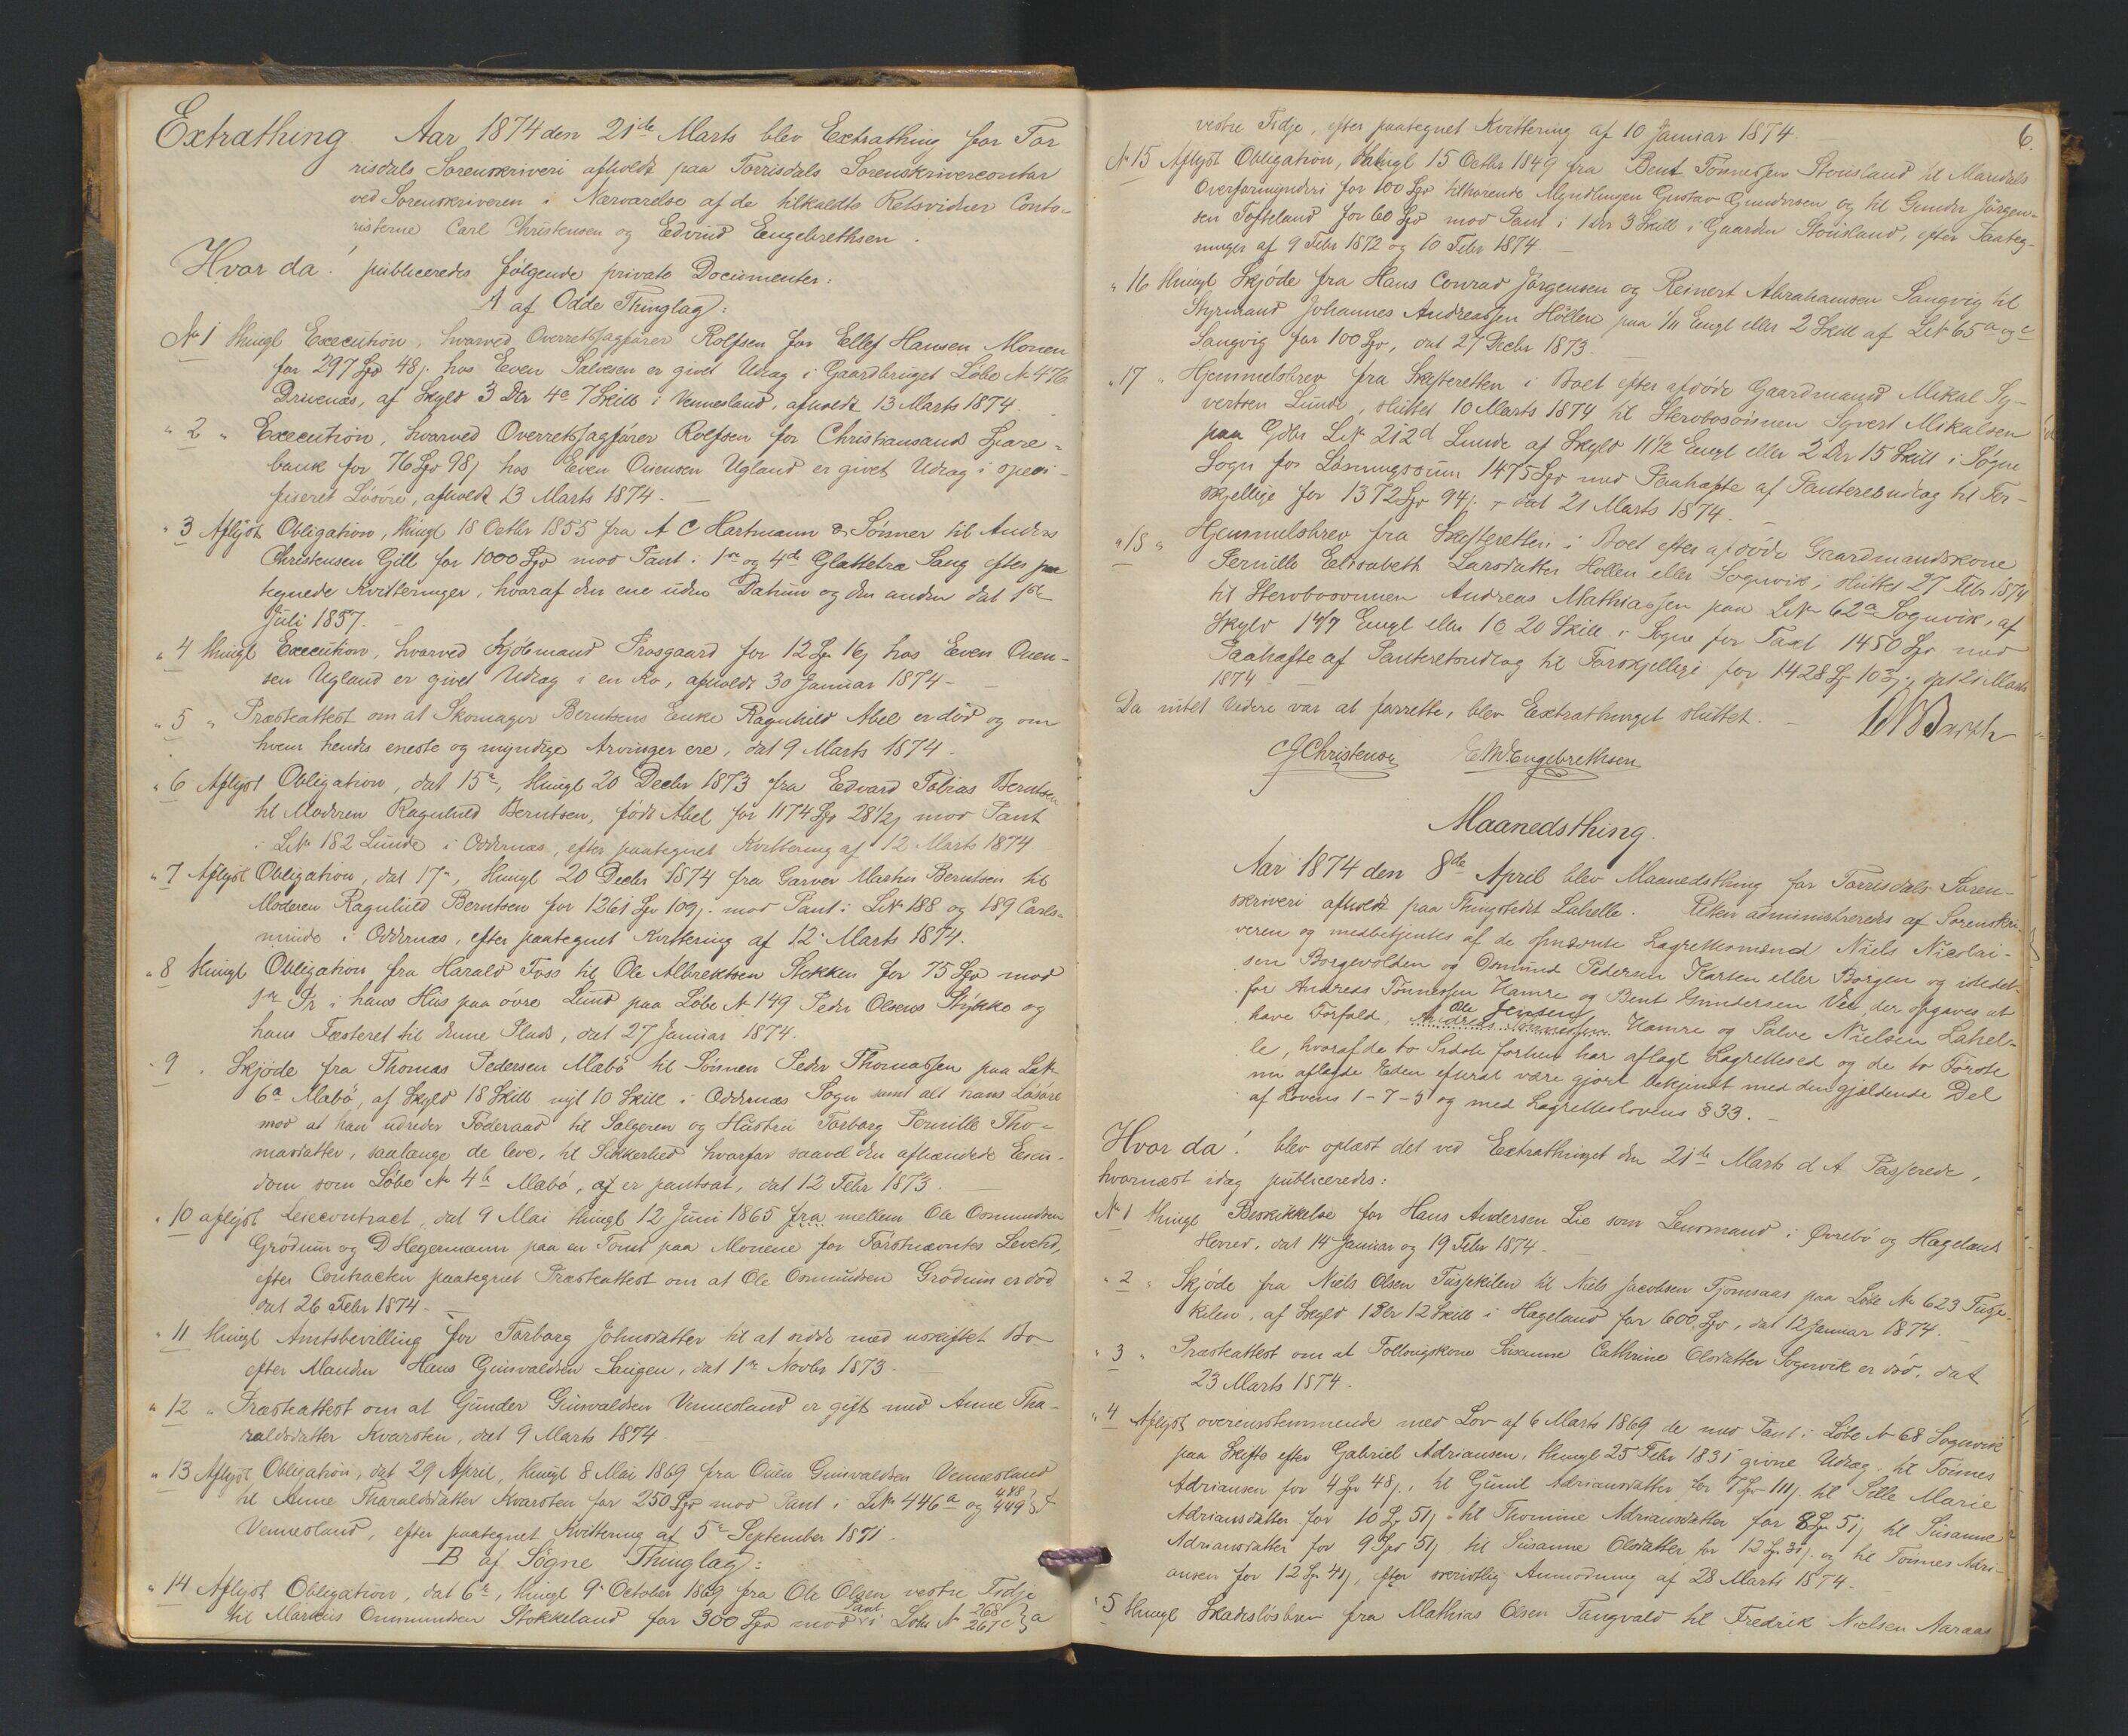 Extrathing Aar 1874 den 21de Marts blev Extrathing for Tor
risdals Sorenskriveri afholdt paa Torrisdals Sorenskrivercontor
ved Sorenskriveren i Nærværelse af de tilkaldte Retsvidner Conto-
risterne Carl Christensen og Edvind Engebrethsen.
Hvor da! publiceredes følgende private Documenter:
A af Odde Thinglag:
No 1 thingl Execution, hvorved Overretssagfører Rolfsen for Ellef Hansen Monen
for 297 Spd 48 j. hos Even Salvesen er givet Udlæg i Gaardbruget Løbe No 476
Drivenæs, af Skyld 3 Dlr 4 o 7 Skill i Vennesland, afholdt 13 Marts 1874.
" 2 " Execution, hvorved Overretssagfører Rolfsen for Christiansands Spare-
bank for 76 Spd 98 j hos Even Ouensen Ugland er givet Udlæg i speci-
ficeret Løsøre, afholdt 13 Marts 1874.
" 3 Aflyst Obligation, thingl 18 Octbr 1855 fra A C Hartmann & Sønner til Anders
Christensen Gill for 1000 Spd mod Pant i 1ste og 4de Glattetra Sang efter paa
tegnede Kvitteringer, hvoraf den ene uden Datum og den anden dat 1ste
Juli 1857.
" 4 thingl Execution, hvorved Kjøbmand Prosgaard for 12 Sp 16 j hos Even Ouen-
sen Ugland er givet Udlæg i en Ko, afholdt 30 Januar 1874 -
" 5 " Præsteattest om at Skomager Berntsens Enke Ragnhild Abel er død og om
hvem hendes eneste og myndige Arvinger ere, dat 9 Marts 1874.
" 6 Aflyst Obligation, dat 15de, thingl 20 Decbr 1873 fra Edvard Tobias Berntsen
til Moderen Ragnhild Berntsen, født Abel for 1174 Spd 28 1/2 j mod Pant
i LNo 182 Lunde i Oddernæs, efter paategnet Kvittering af 12 Marts 1874
" 7 Aflyst Obligation, dat 17de, thingl 20 Decbr 1874 fra Garver Mathis Berntsen til
Moderen Ragnhild Berntsen for 1261 Spd 109 j. mod Pant i LNo 188 og 189 Carls-
minde i Oddernæs, efter paategnet Kvittering af 12 Marts 1874.
" 8 thingl Obligation fra Harald Foss til Ole Albrektsen Stokken for 75 Spd mod
1ste Pr i hans Hus paa øvre Lund paa Løbe No 149 Peder Olsens Stykke og
hans Fæsteret til denne Plads, dat 27 Januar 1874.
" 9 " Skjøde fra Thomas Pedersen Mæbø til Sønnen Peder Thomassen paa LNo
6a Mæbø, af Skyld 18 Skill nyt 10 Skill i Oddernæs Sogn samt alt hans Løsøre
mod at han udreder Føderaad til Sælgeren og Hustru Torborg Pernille Tho-
masdatter, saalænge de leve, til Sikkerhed hvorfor saavel den afhændede Eien-
dom som Løbe No 4b Mæbø, af er pantsat, dat 12 Febr 1873.
" 10 aflyst Leiecontract, dat 9 Mai thingl 12 Juni 1865 fra mellem Ole Osmundsen
Grødum og D Hegermann paa en Tomt paa Monene for Førstnævntes Levetid,
efter Contracten paategnet Præsteattest om at Ole Osmundsen Grødum er død
dat 26 Febr 1874. -
" 11 thingl Amtsbevilling for Torborg Johnsdatter til at sidde med uskiftet Bo
efter Manden Hans Gunvaldsen Langen, dat 1ste Novbr 1873.
" 12 " Præsteattest om at Gunder Gunvaldsen Vennesland er gift med Anne Tha-
raldsdatter Kvarsten, dat 9 Marts 1874.
" 13 Aflyst Obligation, dat 29 April, thingl 8 Mai 1869 fra Ouen Gunvaldsen Vennesland
til Anne Tharaldsdatter Kvarsten for 250 Spd mod Pant i LNo 446a og 448 449
Vennesland, efter paategnet Kvittering af 5te September 1871.
B af Søgne Thinglag:
" 14 Aflyst Obligation, dat 6te, thingl 9 October 1869 fra Ole Olsen vestre Tidje
til Marcus Ommundsen Stokkeland for 300 Spd mod Pant i Løbe No 268 267c a
6.
vestre Tidje, efter paategnet Kvittering af 10 Januar 1874.
No 15 Aflyst Obligation, thingl 15 Octbr 1849 fra Bent Tønnessen Stousland til Mandals
Overformynderi for 100 Spd tilhørende Myndlingen Gustav Gundersen og til Gunder Jørgen-
sen Tofteland for 60 Spd mod Pant i 1 Dlr 3 Skill i Gaarden Stousland, efter Paateg-
ninger af 9 Febr 1872 og 10 Febr 1874.
" 16 thingl Skjøde fra Hans Conrad Jørgensen og Reinert Abrahamsen Langvig til
Styrmand Johannes Andreassen Høllen paa 1/11 Engl eller 2 Skill af LNo 65a og c
Langvig for 100 Spd, dat 27 Decbr 1873.
" 17 " Hjemmelsbrev fra Skifteretten i Boet efter afdøde Gaardmand Mikal Sy-
vertsen Lunde, sluttet 10 Marts 1874 til Stervbosønnen Syvert Mikalsen
paa Gdbr LNo 212d Lunde af Skyld 11 1/2 Engl eller 2 Dlr 15 Skill i Søgne
Sogn for Løsningssum 1475 Spd med Paahæfte af Panteretsudlæg til For-
skjellige for 1372 Spd 94 j. - dat 21 Marts 1874.
" 18 " Hjemmelsbrev fra Skifteretten i Boet efter afdøde Gaardmandskone
Pernille Elisabeth Larsdatter Høllen eller Sognvik, sluttet 27 Febr 1874
til Stervbosønnen Andreas Mathiassen paa LNo 62a Sognvik, af
Skyld 1 4/7 Engl eller 1 o 20 Skill i Søgne for Taxt 1450 Spd med
Paahæfte af Panteretsudlæg til Forskjellige for 1428 Sp 103 j., dat 21 Marts
1874
Da intet videre var at forrette, blev Extrathinget sluttet.
CJChristensen EMEngebrethsen
Maanedsthing.
Aar 1874 den 8de April blev Maanedsthing for Torrisdals Soren-
skriveri afholdt paa Thingstedet Lahelle. Retten administreredes af Sorenskri-
veren og medbetjentes af de opnævnte Lagrettesmænd Niels Nicolai-
sen Borgevolden og Osmund Pedersen Karten eller Borgen og istedet-
for Andreas Tønnessen Hamre og Bent Gundersen Vee, der opgaves at
have Forfald, Andreas Tønnessen Ole Jensen Hamre og Salve Nielsen Lahel-
le, hvoraf de to Sidste forhen har aflagt Lagrettesed og de to Første
nu aflagde Eden efterat være gjort bekjendt med den gjældende Del
af Lovens 1-7-5 og med Lagretteslovens § 33.
Hvor da! blev oplæst det ved Extrathinget den 21de Marts d A Passerede,
hvornæst idag publiceredes:
No 1 thingl Beskikkelse for Hans Andersen Lie som Lensmand i Øvrebø og Hægeland
Herred, dat 14 Januar og 19 Febr 1874.
" 2 " Skjøde fra Niels Olsen Tusjekilen til Niels Jacobsen Tjomsaas paa Løbe No 623 Tusje-
kilen, af Skyld 1 Dlr 12 Skill i Hægeland for 600 Spd, dat 12 Januar 1874.
" 3 " Præsteattest om at Follougskone Susanne Cathrine Olsdatter Sognvik er død, dat
23 Marts 1874.
" 4 Aflyst overensstemmende med Lov af 6 Marts 1869 de med Pant i Løbe No 68 Sognvik
paa Skifte efter Gabriel Adriansen, thingl 25 Febr 1831 givne Udlæg til Tønnes
Adriansen for 4 Sp 48 j., til Gunil Adriansdatter for 7 Sp 111 j. til Pille Marie
Adriansdatter for 10 Sp 51 j til Thomine Adriansdatter for 8 Sp 51 j til Susanne
Adriansdatter for 9 Spd 51 j til Susanne Olsdatter for 12 Sp 31 j. og til Tønnes Adri-
ansen for 12 Sp 41 j, efter skriftlig Anmodning af 28 Marts 1874.
" 5 thingl Skadesløsbrev fra Mathias Olsen Tangvald til Fredrik Nielsen Aaraas